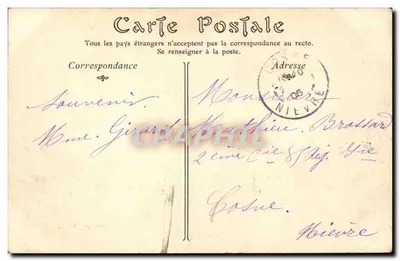 Carte Postale
Tous les pays étrangers n'acceptent pas la correspondance au recto.
Se renseigner à la poste.
Correspondance
Adresse
NIEVRE
Souvenir
Mme. Girard
Monsieur
Matthieu Brossard
2ème Cie 85 Rég. Gie
Cosne.
Nièvre
CPAPHIL.COM